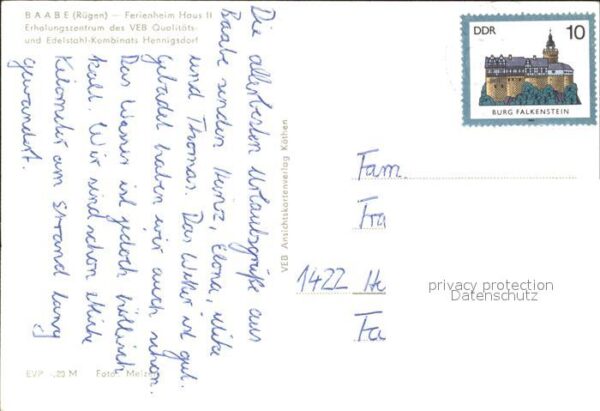 BAABE (Rügen) — Ferienheim Haus II
Erholungszentrum des VEB Qualitäts-
und Edelstahl-Kombinats Hennigsdorf
Die allerbesten Urlaubsgrüße aus
Baabe senden Heinz, Elona, Ulike
und Thomas. Das Wetter ist gut.
Gebadet haben wir auch schon.
Das Wasser ist jedoch höllisch
kalt. Wir sind schon etliche
Kilometer am Strand lang
gewandert.
EVP -,20 M Foto: Melzer
VEB Ansichtskartenverlag Köthen
DDR 10
BURG FALKENSTEIN
Fam.
Fra
1422 He
Fa
privacy protection
Datenschutz